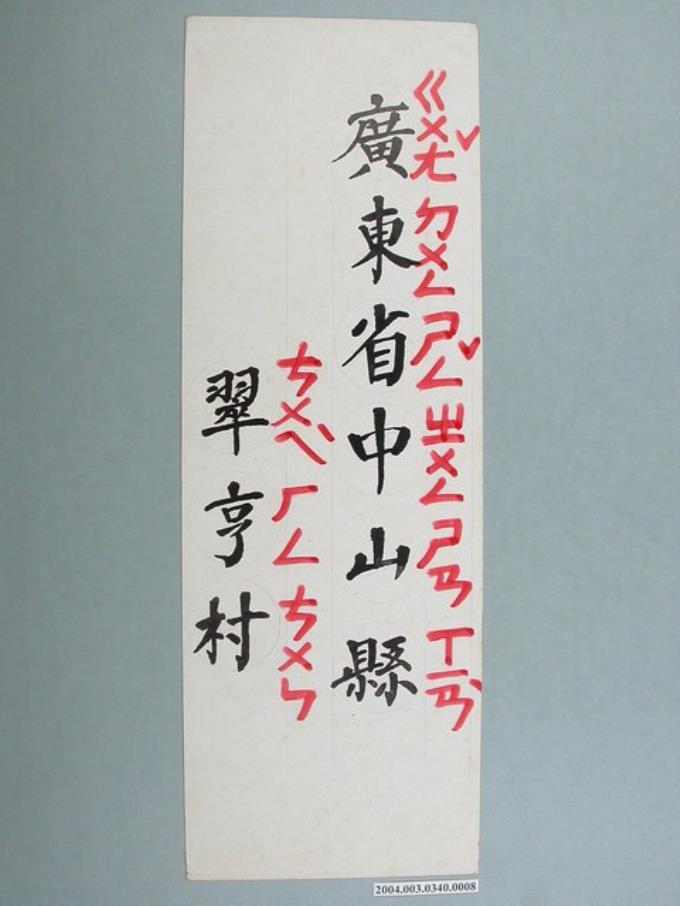 廣東省中山縣
ㄍㄨㄤˇ ㄉㄨㄥ ㄕㄥˇ ㄓㄨㄥ ㄕㄢ ㄒㄧㄢˋ
翠亨村
ㄘㄨㄟˋ ㄏㄥ ㄘㄨㄣ
2004.003.0340.0008